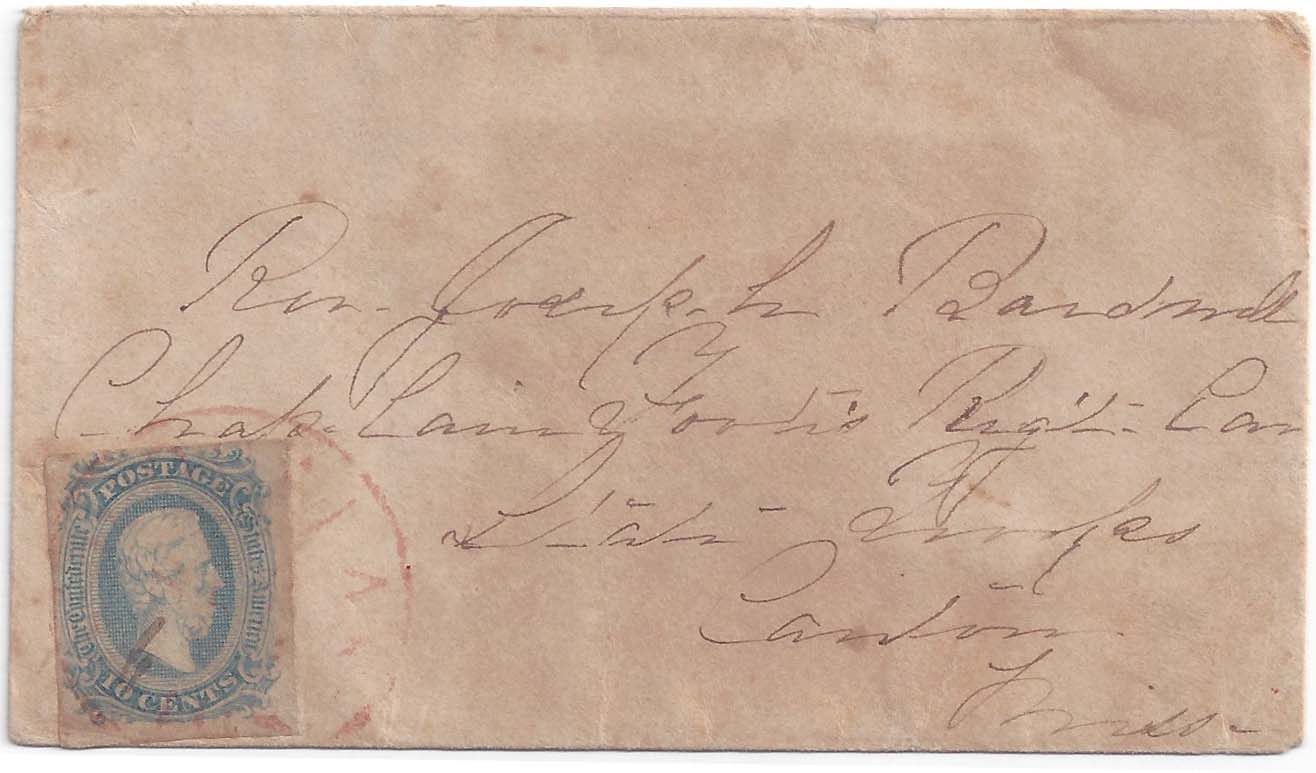 Rev. Joseph Bardwell
Chaplain Yoote's Reg't. Cav
State Troops
Canton
Miss.
POSTAGE
The Confederate States America
10 CENTS